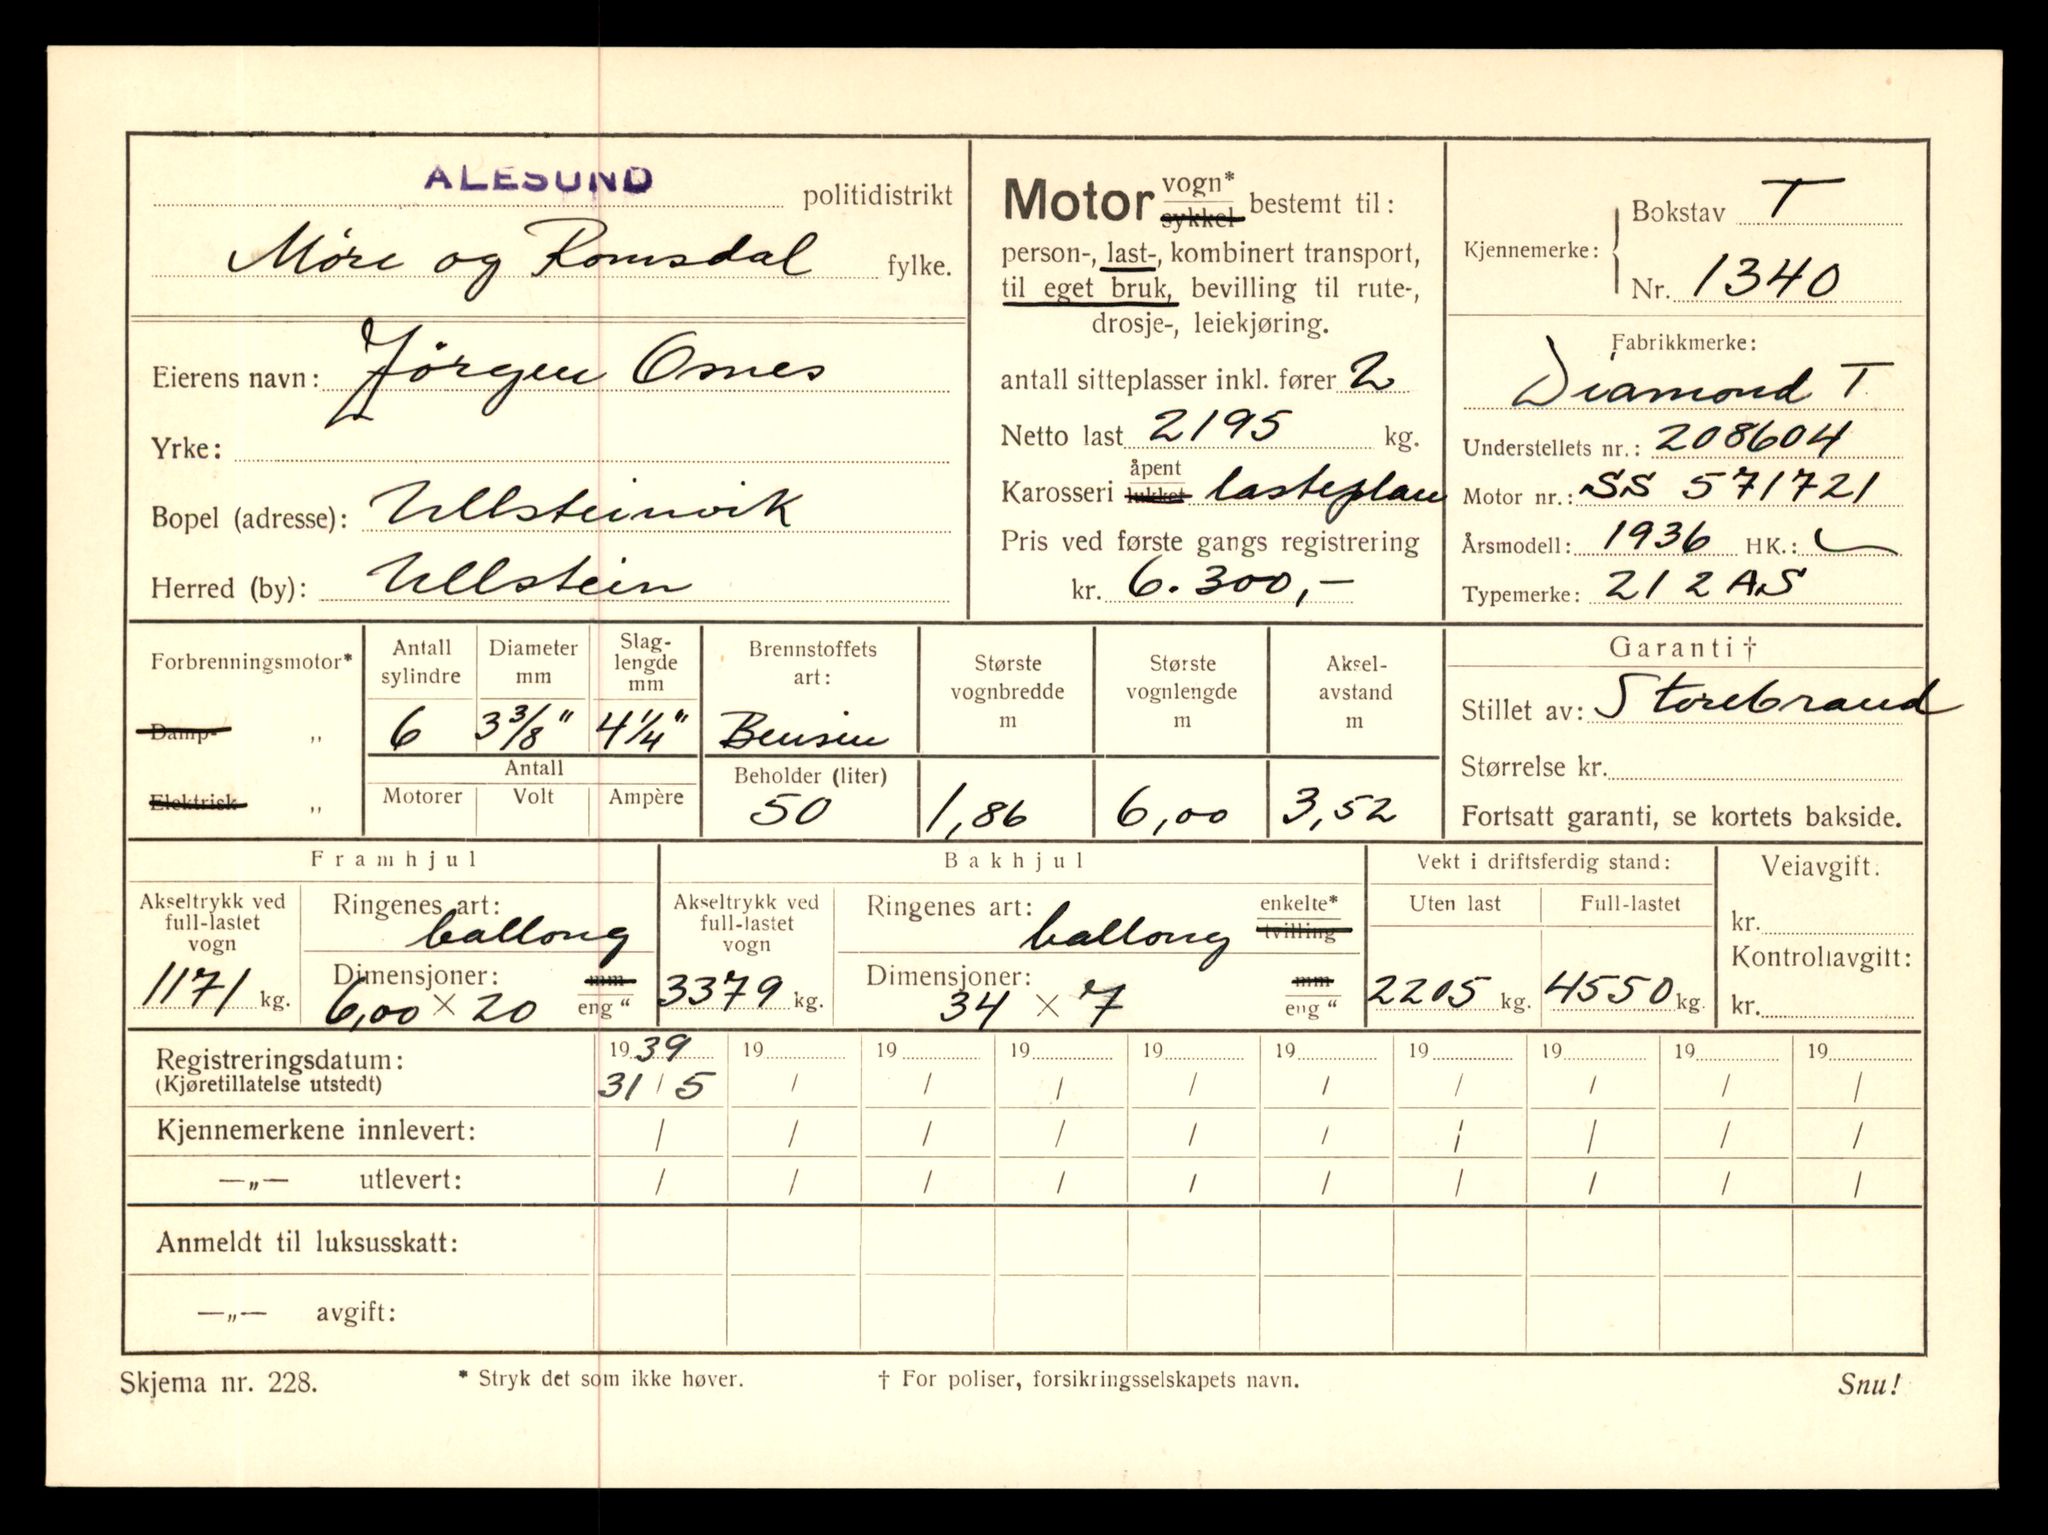 ALESUND politidistrikt
Møre og Romsdal fylke.
Eierens navn: Jørgen Osnes
Yrke:
Bopel (adresse): Ullsteinvik
Herred (by): Ullstein
Motor vogn* sykkel bestemt til:
person-, last-, kombinert transport,
til eget bruk, bevilling til rute-,
drosje-, leiekjøring.
antall sitteplasser inkl. fører 2
Netto last 2195 kg.
Karosseri åpent lukket lasteplan
Pris ved første gangs registrering
kr. 6.300,-
Kjennemerke: Bokstav T
Nr. 1340
Fabrikkmerke:
Diamond T
Understellets nr.: 208604
Motor nr.: SS 571721
Årsmodell: 1936 HK.:
Typemerke: 212 AS
Forbrenningsmotor*
Damp- „
Elektrisk „
Antall sylindre
6
Diameter mm
3 3/8"
Slag-
lengde
mm
4 1/4"
Antall
Motorer Volt Ampère
Brennstoffets
art:
Bensin
Beholder (liter)
50
Største
vognbredde
m
1,86
Største
vognlengde
m
6,00
Aksel-
avstand
m
3,52
Garanti †
Stillet av: Storebrand
Størrelse kr.
Fortsatt garanti, se kortets bakside.
Framhjul
Akseltrykk ved
full-lastet
vogn
1171 kg.
Ringenes art:
ballong
Dimensjoner: mm
6,00 × 20 eng "
Bakhjul
Akseltrykk ved
full-lastet
vogn
3379 kg.
Ringenes art: enkelte*
ballong tvilling
Dimensjoner: mm
34 × 7 eng "
Vekt i driftsferdig stand:
Uten last Full-lastet
2205 kg. 4550 kg.
Veiavgift:
kr.
Kontrollavgift:
kr.
Registreringsdatum: 1939 19 19 19 19 19 19 19 19 19
(Kjøretillatelse utstedt) 31 / 5 / / / / / / / / /
Kjennemerkene innlevert: / / / / / / / / / /
—„— utlevert: / / / / / / / / / /
Anmeldt til luksusskatt:
—„— avgift:
Skjema nr. 228. * Stryk det som ikke høver. † For poliser, forsikringsselskapets navn. Snu!